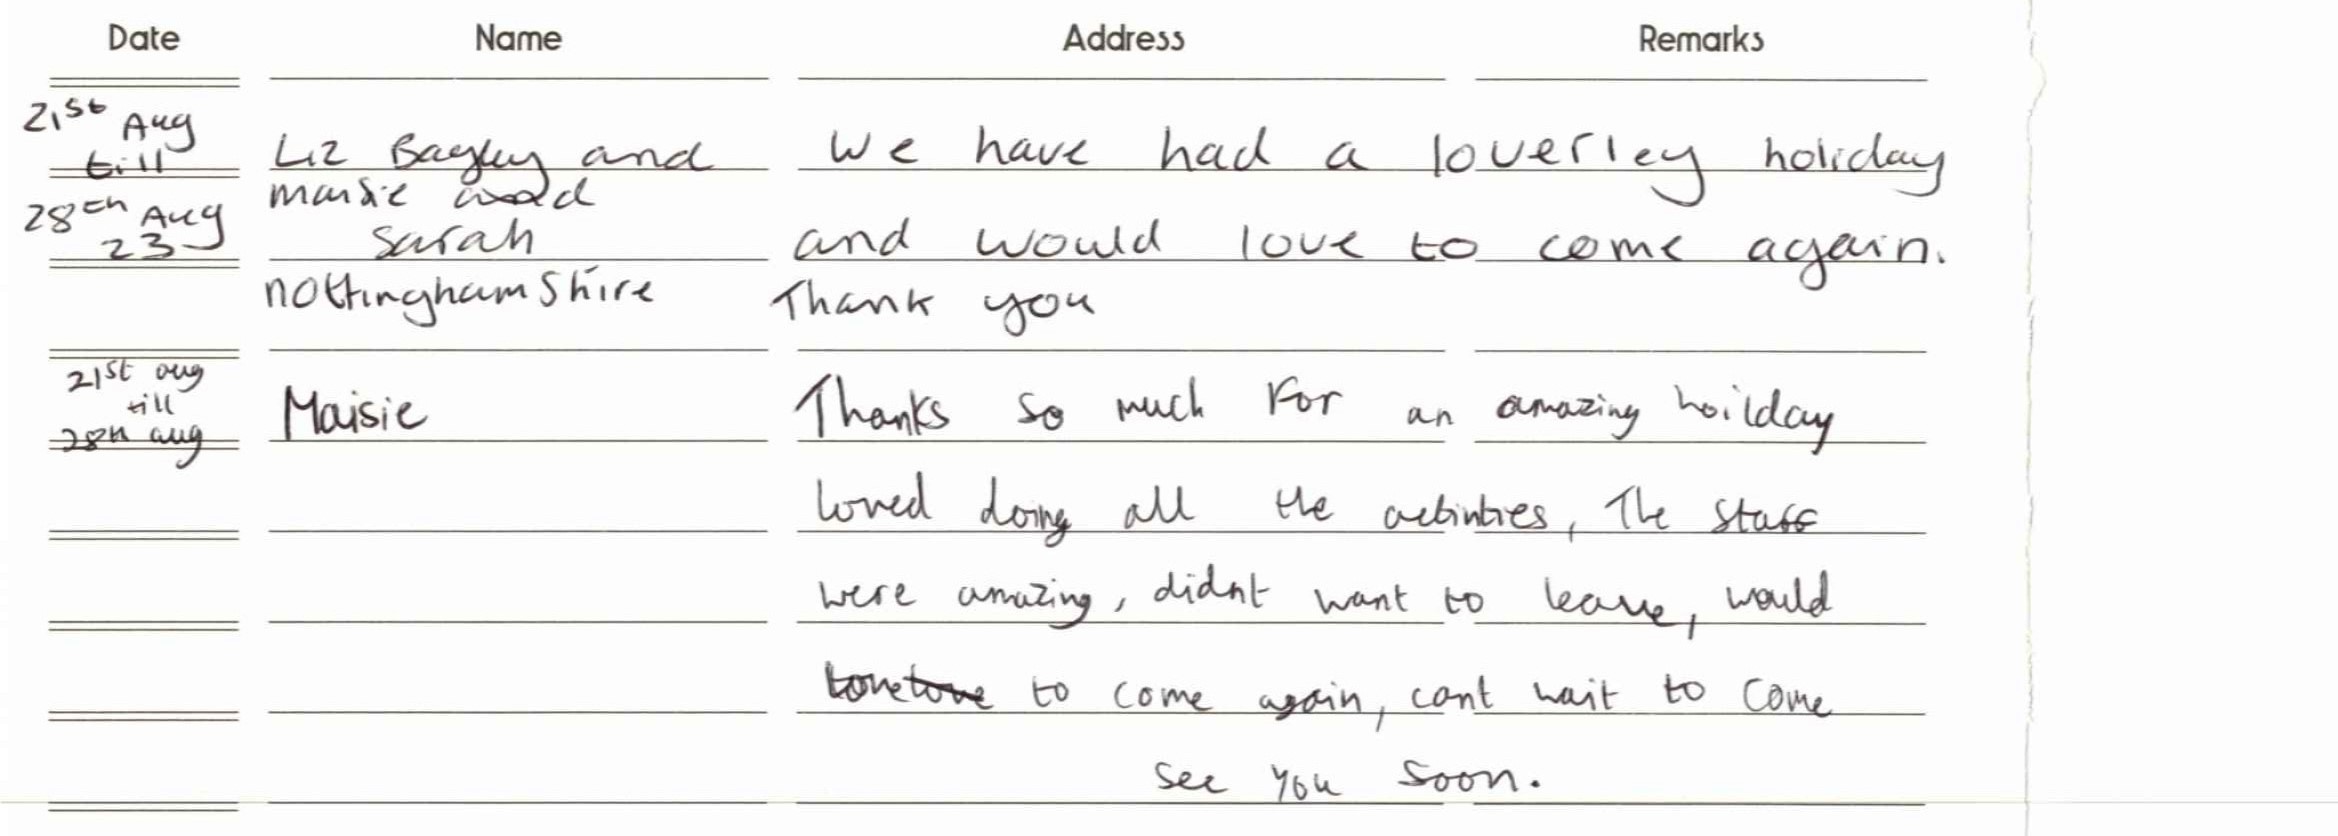 Date Name Address Remarks
21st Aug
till Liz Bagley and We have had a loverley holiday
maisie and
28th Aug
23 Sarah and would love to come again.
nottinghamshire Thank you
21st aug
till
28th aug Maisie Thanks so much For an amazing hoilday
loved doing all the activities, The staff
were amazing, didnt want to leave, would
love to come again, cant wait to come
see you soon.